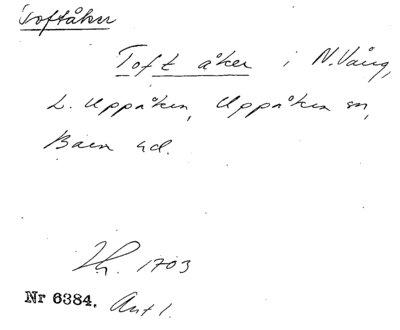 Toftåker
Toft åker i N. Vång,
L. Uppåkra, Uppåkra sn,
Bara hd.
Lh. 1703
Nr 6384. Ant 1.